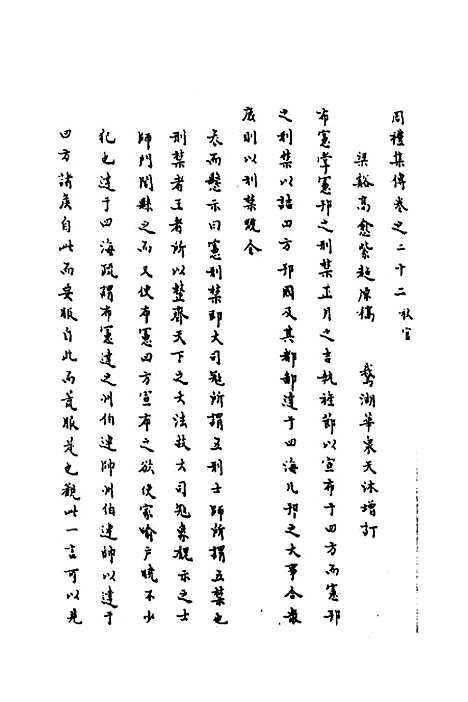 周禮集傳卷之二十二 秋官
梁谿高愈紫超原稿 鵝湖華泉天沐增訂
布憲掌憲邦之刑禁正月之吉執旌節以宣布于四方而憲邦
之刑禁以詰四方邦國及其都鄙達于四海凡邦之大事合衆
庶則以刑禁號令
表而懸示曰憲刑禁即大司寇所謂五刑士師所謂五禁也
刑禁者王者所以整齊天下之大法故大司寇象魏示之士
師門閭縣之而又使布憲四方宣布之欲使家喻户曉不少
犯也達于四海疏謂布憲達之州伯達師州伯達師以達于
四方諸侯自此而要服自此而荒服是也觀此一言可以見